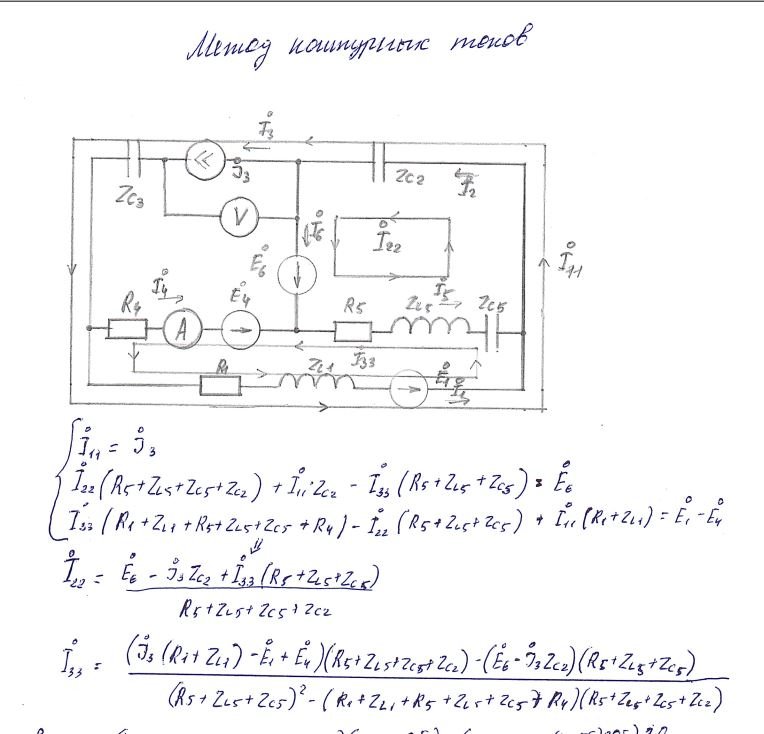 Метод контурных токов
İ3
Zc3
J̇3
Zc2
İ2
V
İ6
İ22
Ė6
İ11
İ4
R4
Ė4
R5
ZL5
İ5
Zc5
A
İ33
R1
ZL1
Ė1
İ1
İ11 = J̇3
İ22 (R5+ZL5+Zc5+Zc2) + İ11·Zc2 - İ33 (R5+ZL5+Zc5) = Ė6
İ33 (R1+ZL1+R5+ZL5+Zc5+R4) - İ22 (R5+ZL5+Zc5) + İ11 (R1+ZL1) = Ė1 - Ė4
⇓
İ22 = Ė6 - J̇3 Zc2 + İ33 (R5+ZL5+Zc5)
R5+ZL5+Zc5+Zc2
İ33 = (J̇3 (R1+ZL1) - Ė1 + Ė4)(R5+ZL5+Zc5+Zc2) - (Ė6 - J̇3 Zc2)(R5+ZL5+Zc5)
(R5+ZL5+Zc5)² - (R1+ZL1+R5+ZL5+Zc5+R4)(R5+ZL5+Zc5+Zc2)